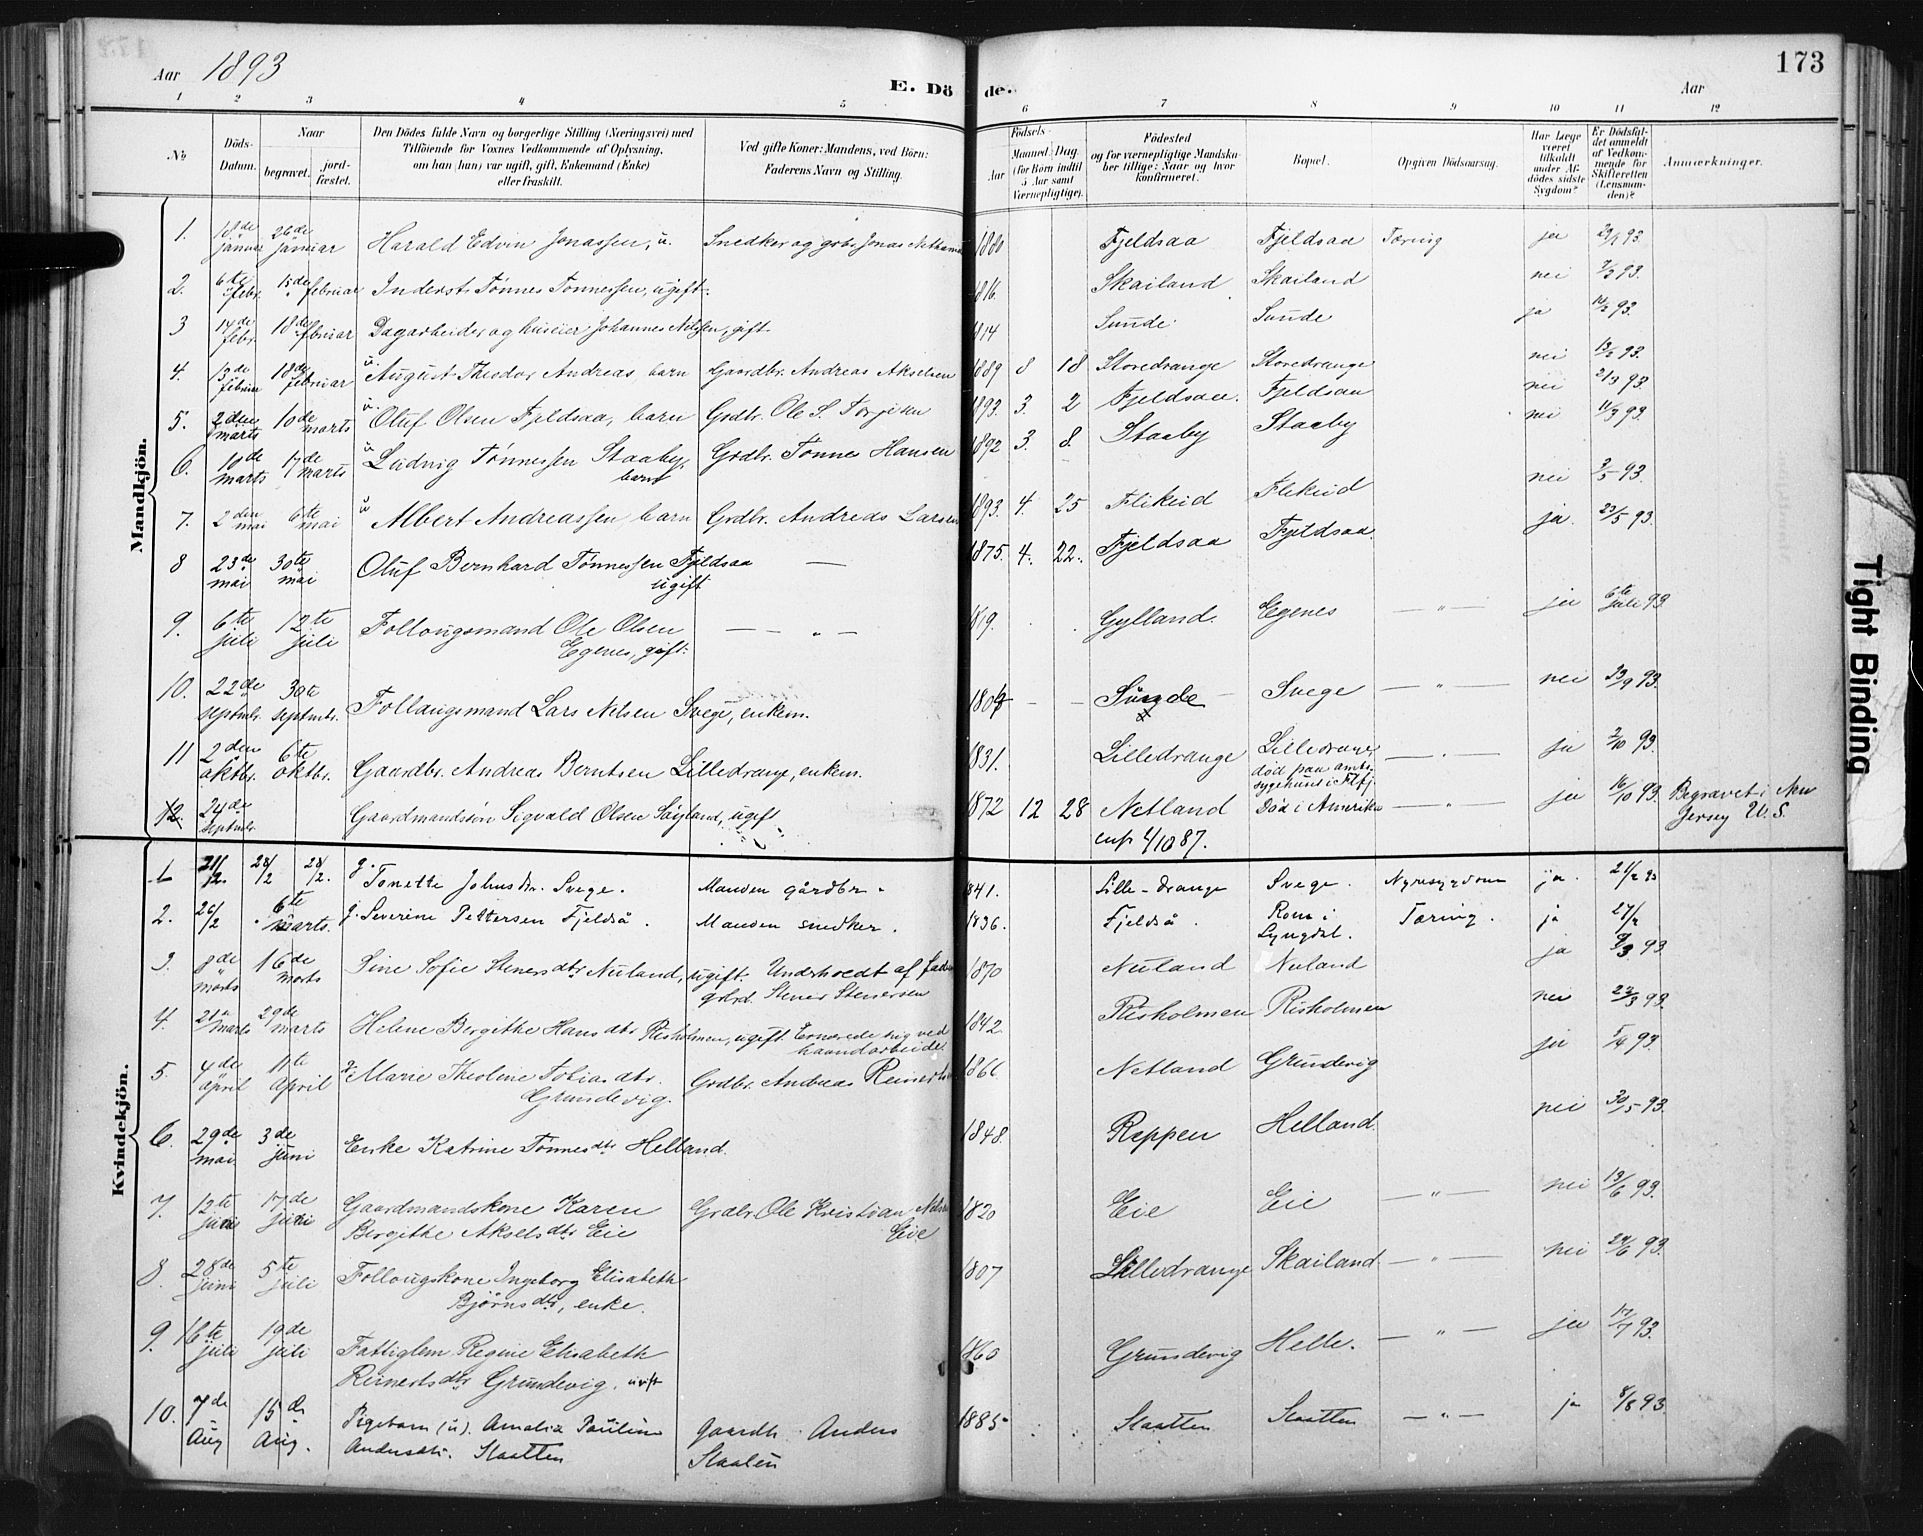 Aar 1893
E. Döde.
Aar
173
1 2 3 4 5 6 7 8 9 10 11 12
No
Döds-Datum.
Naar begravet. jord-fæstet.
Den Dödes fulde Navn og borgerlige Stilling (Næringsvei) med
Tilföiende for Voxnes Vedkommende af Oplysning,
om han (hun) var ugift, gift, Enkemand (Enke)
eller fraskilt.
Ved gifte Koner: Mandens, ved Börn:
Faderens Navn og Stilling.
Födsels-
Aar
Maaned Dag
(for Börn indtil
5 Aar samt
Værnepligtige).
Födested
og for værnepligtige Mandska-
ber tillige: Naar og hvor
konfirmeret.
Bopæl.
Opgiven Dödsaarsag.
Har Læge
været
tilkaldt
under Af-
dödes sidste
Sygdom?
Er Dödsfal-
det anmeldt
af Vedkom-
mende for
Skifteretten
(Lensman-
den)?
Anmærkninger.
Mandkjön.
1. 18de januar 26de januar Harald Edvin Jonassen, u. Snedker og gbr. Jonas 1880 Fjeldsaa Fjeldsaa Tæring ja 93.
2. 6te febr. 15de februar Inderst Tønnes Tønnessen, ugift. 1816. Skailand Skailand nei 93.
3 14de febr. 18de februar Dagarbeider og huseier Johannes Nilsen, gift. 1814 Sunde Sunde ja 93.
4. 13de februar 18de februar u August Theodor Andreas barn Gaardbr. Andreas Akselsen 1889 8 18 Storedrange Storedrange nei 93.
5. 2den marts 10de marts u. Oluf Olsen Fjeldsaa, barn Grdbr. Ole S. Torjesen 1893. 3. 2 Fjeldsaa. Fjeldsaa nei 21/3 93.
6. 10de marts 17de marts u Ludvig Tønnessen Staaby, barn Grdbr. Tønnes Hansen 1892 3. 8. Staaby Staaby nei 11/3 93.
7. 2den mai 6te mai u Albert Andreassen, barn Grdbr. Andreas Larsen 1893. 4. 25 Flikeid Flikeid nei 3/5 93.
8 23de mai 30te mai Oluf Bernhard Tønnessen Fjeldsaa ugift — 1875. 4. 22. Fjeldsaa Fjeldsaa. ja. 23/5 93.
9. 6te juli 12te juli Follougsmand Ole Olsen Egenes, gift. — " — 1819. Gylland. Egenes — " — ja 6te juli 93.
10. 22de septmbr. 30te septmbr. Follaugsmand Lars Nilsen Svege, enkem. Sunde Svege — " — nei 23/9 93.
11 2den oktbr. 6te oktbr. Gaardbr. Andreas Berntsen Lilledrange, enkem. 1831. Lilledrange Lilledrange,
død paa amts-
sygehuset i Flfj — " — ja 2/10 93.
12. 24de septmbr. Gaardmandssøn Sigvald Olsen Søyland, ugift 1872 12 28 Netland Død i Amerika — " — ja 16/10 93. Begravet i New
Jersey U. S.
4/10 87.
Kvindekjön.
1 21/2. 28/2 28/2. g. Tonette Johnsdtr. Svege. Manden gårdbr. 1841. Lille-drange Svege. Nyresygdom ja. 21/2 93
2. 26/2 6te marts. g. Severine Pettersen Fjeldså. Manden snedker. 1836. Fjeldså. Rom i Lyngdal. Tæring. ja 27/2
3. 8de marts 16de marts Sine Sofie Stenersdtr Nuland, ugift Underholdt af fader
grbr. Stener Stenersen 1870 Nuland Nuland ja 9/3 93.
4. 21de marts 29de marts Helene Birgithe Hansdtr Risholmen, ugift. Ernærede sig ved
haandarbeide. 1842. Risholmen Risholmen nei 22/3 93.
5. 4de april 11te april g. Marie Theoline Tobiasdtr.
Grundevig. Grdbr. Andreas Reinert 1866 Netland Grundevig ja 5/4 93.
6. 29de mai. 3de juni Enke Katrine Tønnesdtr Helland. 1848. Reppen Helland. nei 30/5 93.
7. 12te juni 17de juni Gaardmandskone Karen
Birgithe Akselsdtr Eie Grdbr. Ole Kristian Nilsen
Eie 1820 Eie Eie — " — nei 13/6 93.
8. 28de juni 5te juli Follougskone Ingeborg Elisabeth
Bjørnsdtr, enke. 1807 Lilledrange Skailand — " — nei 29/6 93.
9. 16te juli 19de juli Fattiglem Regine Elisabeth
Reinertsdtr Grundevig, ugift 1860 Grundevig Helle. — " — ja 17/7 93.
10. 7de Aug 15de Aug. Pigebarn (u). Amalia Pauline
Andersdtr. Staatten Gaardb. Anders
Staaten 1885 Staatten Staatten — " — ja 8/8 93.
Tight Binding